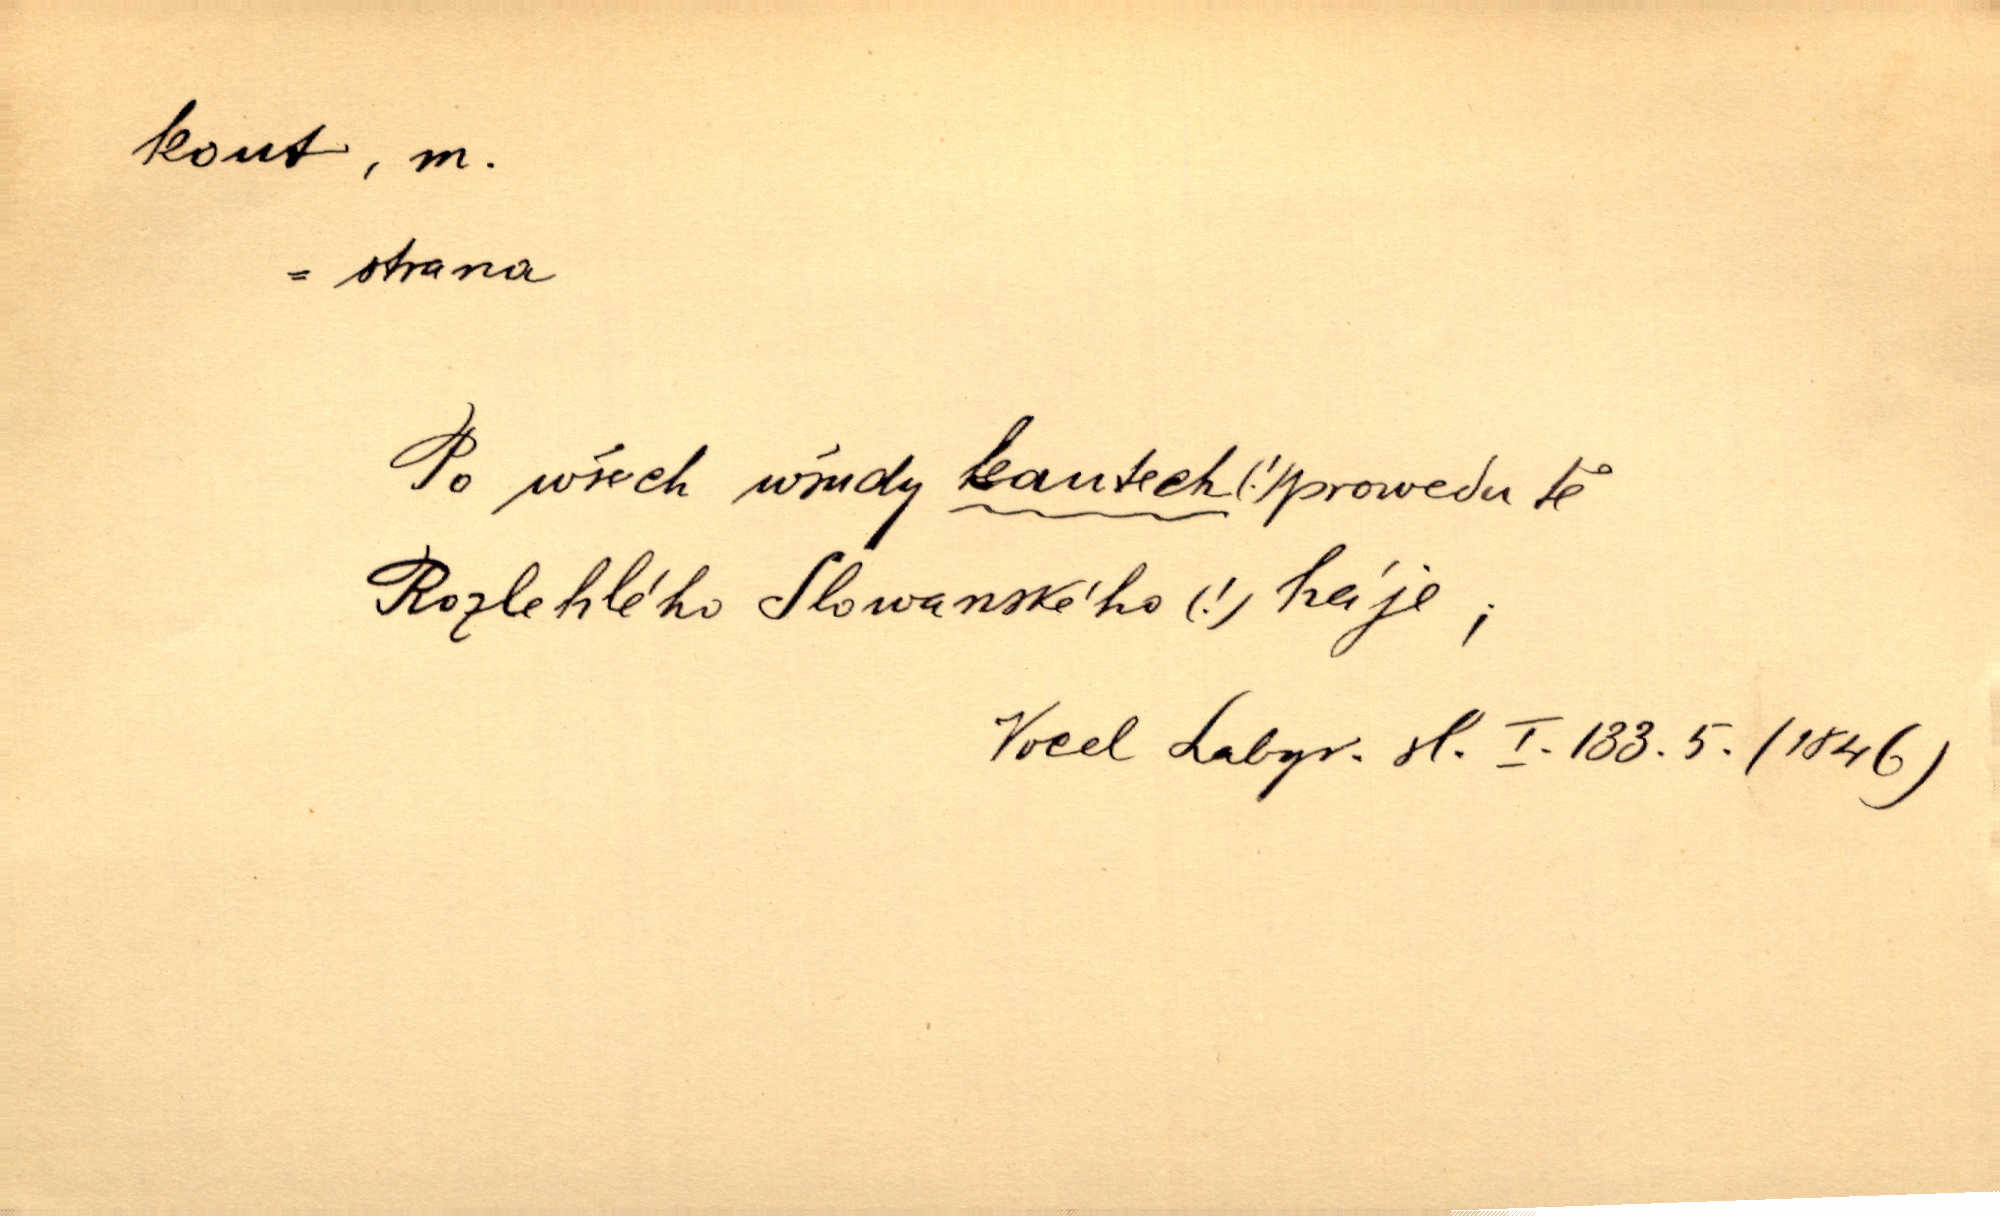 kout, m.
= strana
Po wšech wšudy kautech (!) prowedu tě
Rozlehlého Slowanského (!) háje;
Vocel Labyr. sl. I. 133. 5. (1846)